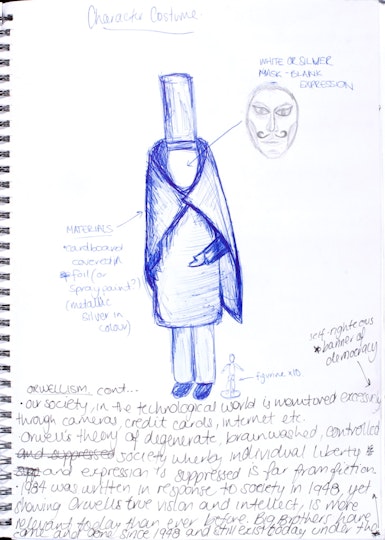 Character Costume
WHITE OR SILVER
MASK - BLANK
EXPRESSION
MATERIALS
cardboard
covered in
foil (or
spray paint?)
(metallic
silver in
colour)
figurine x10.
self-righteous
banner of
democracy
ORWELLISM cont...
• our society, in the technological world is monitored excessively
through cameras, credit cards, internet etc.
Orwell's theory of degenerate, brainwashed, controlled
and suppressed society whereby individual liberty
and expression is suppressed is far from fiction.
• 1984 was written in response to society in 1948, yet
showing Orwell's true vision and intellect, is more
relevant today than ever before. Big Brothers have
come and gone since 1948 and still exist today under the